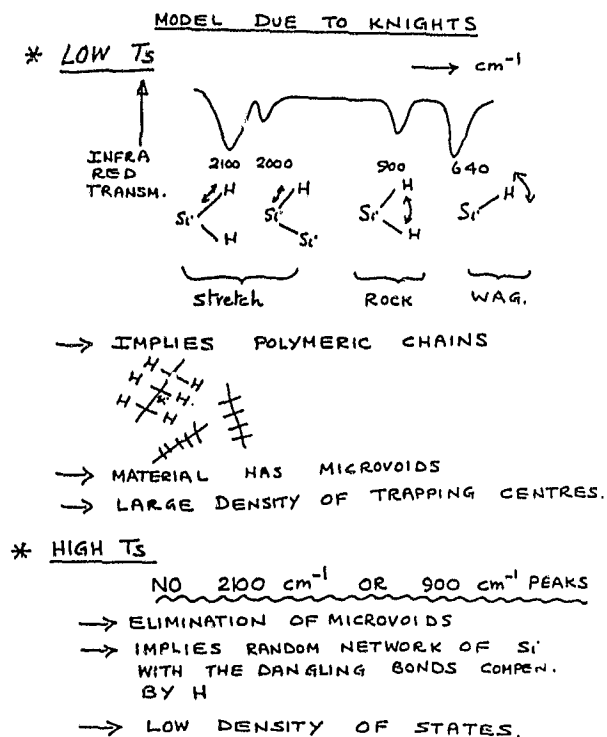 MODEL DUE TO KNIGHTS
* LOW Ts
→ cm⁻¹
INFRA RED TRANSM.
2100 2000 900 640
H H H H
Si Si Si Si
H Si H
Stretch ROCK WAG.
→ IMPLIES POLYMERIC CHAINS
H H
H H
H H
→ MATERIAL HAS MICROVOIDS
→ LARGE DENSITY OF TRAPPING CENTRES.
* HIGH Ts
NO 2100 cm⁻¹ OR 900 cm⁻¹ PEAKS
→ ELIMINATION OF MICROVOIDS
→ IMPLIES RANDOM NETWORK OF Si
WITH THE DANGLING BONDS COMPEN.
BY H
→ LOW DENSITY OF STATES.